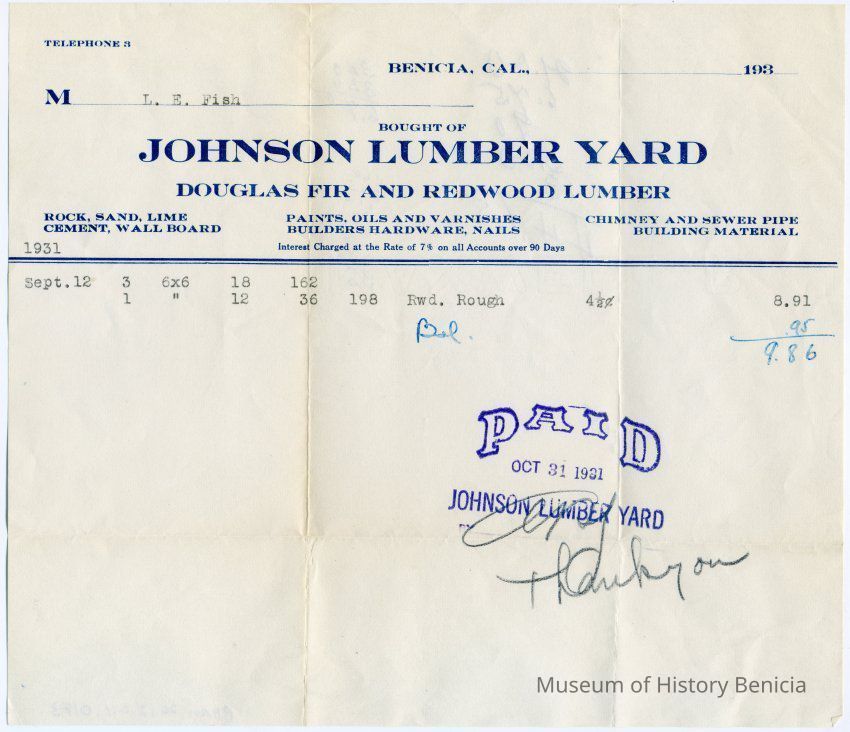 TELEPHONE 3
BENICIA, CAL., 193
M L. E. Fish
BOUGHT OF
JOHNSON LUMBER YARD
DOUGLAS FIR AND REDWOOD LUMBER
ROCK, SAND, LIME PAINTS, OILS AND VARNISHES CHIMNEY AND SEWER PIPE
CEMENT, WALL BOARD BUILDERS HARDWARE, NAILS BUILDING MATERIAL
1931 Interest Charged at the Rate of 7% on all Accounts over 90 Days
Sept.12 3 6x6 18 162
1 " 12 36 198 Rwd. Rough 4½¢ 8.91
Bal. .95
9.86
PAID
OCT 31 1931
JOHNSON LUMBER YARD
Thank you
Museum of History Benicia